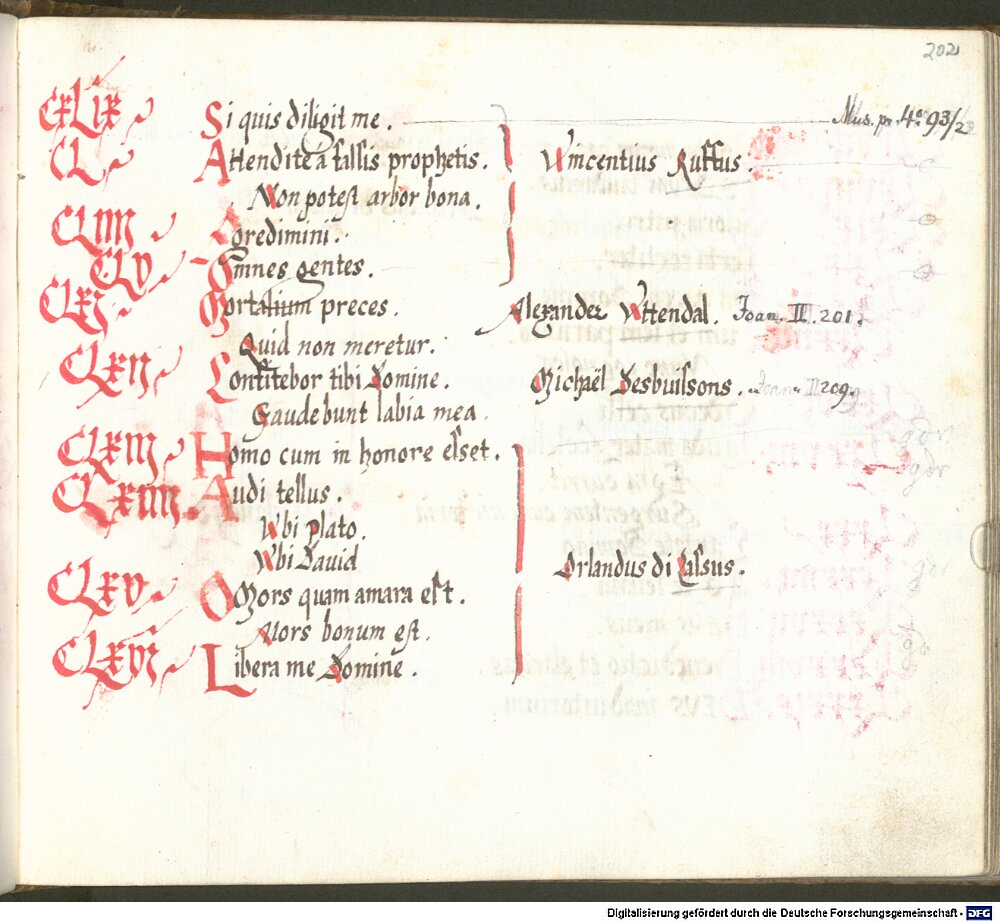 202
CXLIX Si quis diligit me. Mus. pr. 4° 93/2
CL Attendite a falsis prophetis. Wincentius Ruffus.
Non potest arbor bona.
CLIIII Egredimini.
CLV Omnes gentes.
CLXI Mortalium preces. Alexander Wttendal. Joan. II. 201.
Quid non meretur.
CLXII Confitebor tibi Domine. Michaël Desbuissons. Joan. II 209
Gaudebunt labia mea.
CLXIII Homo cum in honore esset.
CLXIIII Audi tellus.
Wbi plato.
Wbi David
Orlandus di Lassus.
CLXV O Mors quam amara est.
Mors bonum est.
CLXVI Libera me Domine.
Digitalisierung gefördert durch die Deutsche Forschungsgemeinschaft - DFG